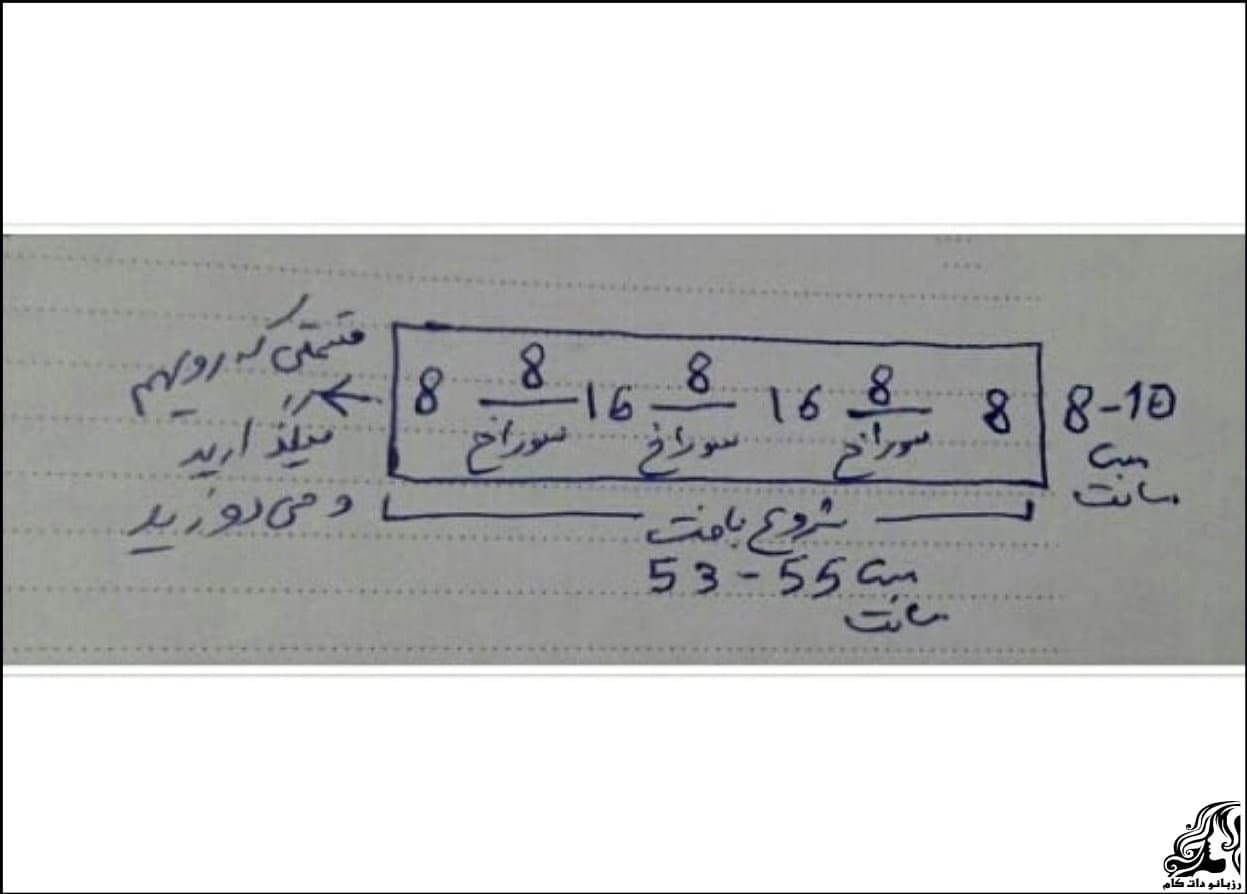 قسمتی که رو هم
میلذارید
و می دوزید
8 8 16 8 16 8 8
سوراخ سوراخ سوراخ
8-10
سانت
شروع بافت
53-55
سانت
رزبانو دات کام